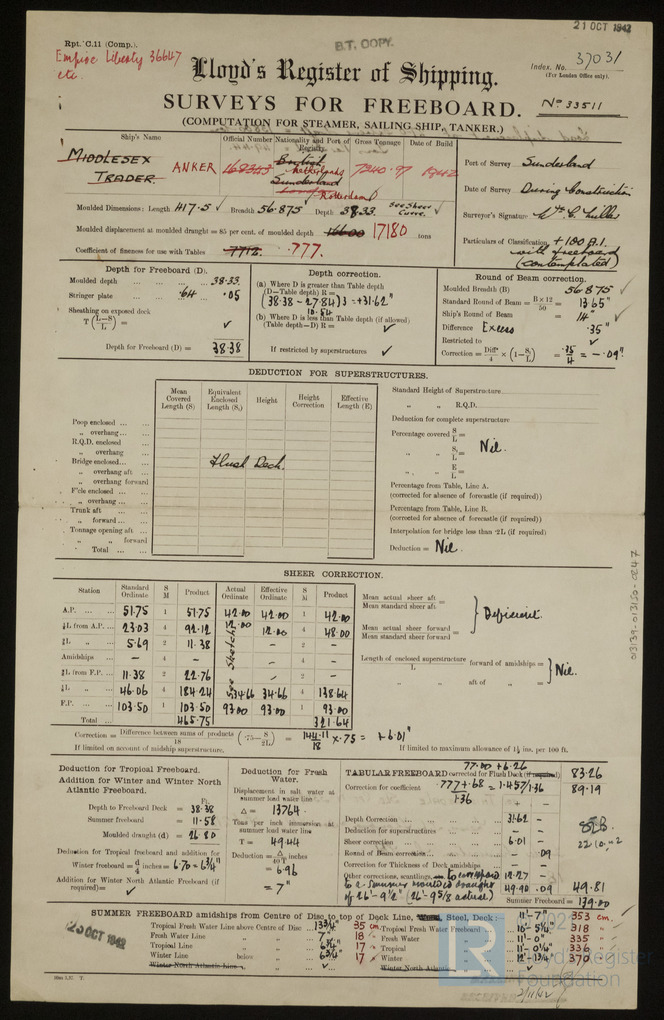 21 OCT 1942
Rpt. C.11 (Comp.).
B.T. COPY.
Empire Liberty 36647
etc.
Index. No. 37031
(For London Office only).
Lloyd's Register of Shipping.
SURVEYS FOR FREEBOARD.
No 33511
(COMPUTATION FOR STEAMER, SAILING SHIP, TANKER.)
Ship's Name
Official Number
Nationality and Port of Registry
Gross Tonnage
Date of Build
MIDDLESEX TRADER
ANKER
168343
British
Netherlands
Sunderland
Rotterdam
7240.97
1942
Port of Survey Sunderland
Date of Survey During Construction
Surveyor's Signature
Particulars of Classification +100 A.1.
with freeboard
(contemplated)
Moulded Dimensions: Length 417.5 Breadth 56.875 Depth 38.33 See Sheer Curve.
Moulded displacement at moulded draught = 85 per cent. of moulded depth 16600 17180 tons
Coefficient of fineness for use with Tables .7712 .777.
Depth for Freeboard (D).
Moulded depth 38.33
Stringer plate .64 .05
Sheathing on exposed deck
T (L-S/L) =
Depth for Freeboard (D) = 38.38
Depth correction.
(a) Where D is greater than Table depth
(D-Table depth) R =
(38.38 - 27.84) 3 = +31.62"
10.54
(b) Where D is less than Table depth (if allowed)
(Table depth-D) R =
If restricted by superstructures
Round of Beam correction.
Moulded Breadth (B) 56.875
Standard Round of Beam = B×12/50 = 13.65"
Ship's Round of Beam = 14"
Difference Excess .35"
Restricted to
Correction = Diff/4 × (1-S/L) = .35/4 = -.09"
DEDUCTION FOR SUPERSTRUCTURES.
Mean Covered Length (S)
Equivalent Enclosed Length (S₁)
Height
Height Correction
Effective Length (E)
Poop enclosed
„ overhang
R.Q.D. enclosed
„ overhang
Bridge enclosed
„ overhang aft
„ overhang forward
F'cle enclosed
„ overhang
Trunk aft
„ forward
Tonnage opening aft
„ „ forward
„ Total
Flush Deck.
Standard Height of Superstructure
„ „ R.Q.D.
Deduction for complete superstructure
Percentage covered S/L =
„ „ S₁/L =
„ „ E/L =
Nil.
Percentage from Table, Line A.
(corrected for absence of forecastle (if required))
Percentage from Table, Line B.
(corrected for absence of forecastle (if required))
Interpolation for bridge less than ·2L (if required)
Deduction = Nil.
SHEER CORRECTION.
Station
Standard Ordinate
S M
Product
Actual Ordinate
Effective Ordinate
S M
Product
A.P. 51.75 1 51.75 42.00 42.00 1 42.00
⅙L from A.P. 23.03 4 92.12 12.00 12.00 4 48.00
⅓L „ 5.69 2 11.38 - 2 -
Amidships - 4 - - 4 -
⅓L from F.P. 11.38 2 22.76 - 2 -
⅙L „ 46.06 4 184.24 34.66 34.66 4 138.64
F.P. 103.50 1 103.50 93.00 93.00 1 93.00
Total 465.75 321.64
See Sketch
Mean actual sheer aft =
Mean standard sheer aft
Mean actual sheer forward =
Mean standard sheer forward
Deficient.
Length of enclosed superstructure/L forward of amidships =
„ aft of „ =
Nil.
Correction = Difference between sums of products/18 (·75-S/2L) = 144.11/18 × .75 = +6.01"
If limited on account of midship superstructure.
If limited to maximum allowance of 1½ ins. per 100 ft.
013139-013150-0247
Deduction for Tropical Freeboard.
Addition for Winter and Winter North Atlantic Freeboard.
Ft.
Depth to Freeboard Deck = 38.38
Summer freeboard = 11.58
Moulded draught (d) = 26.80
Deduction for Tropical freeboard and addition for
Winter freeboard = d/4 inches = 6.70 = 6¾"
Addition for Winter North Atlantic Freeboard (if required) =
Deduction for Fresh Water.
Displacement in salt water at summer load water line
Δ = 13764
Tons per inch immersion at summer load water line
T = 49.44
Deduction = Δ/40T inches
= 6.96
= 7"
77.00 + 6.26
TABULAR FREEBOARD corrected for Flush Deck (if required) 83.26
Correction for coefficient .777+.68/1.36 = 1.457/1.36 89.19
+ -
Depth Correction 31.62 -
Deduction for superstructures - -
Sheer correction 6.01 -
Round of Beam correction - .09
Correction for Thickness of Deck amidships - -
Other corrections, scantlings, to correspond 12.27 -
to a Summer moulded draught
of 26'-9½" (26'-9⅝ actual) 49.90 .09 49.81
Summer Freeboard = 139.00
22.10.42
SUMMER FREEBOARD amidships from Centre of Disc to top of Deck Line, Wood, Steel, Deck:- 11'-7" 353 cm.
Tropical Fresh Water Line above Centre of Disc 13¾" 35 cm.
Fresh Water Line „ 7" 18
Tropical Line „ 6¾" 17
Winter Line below „ 6¾" 17
Winter North Atlantic Line „
Tropical Fresh Water Freeboard 10'-5¼" 318
Fresh Water „ 11'-0" 335
Tropical „ 11'-0¼" 336
Winter „ 12'-1¾" 370
Winter North Atlantic „
23 OCT 1942
2/11/42
LR
Lloyd's Register
Foundation